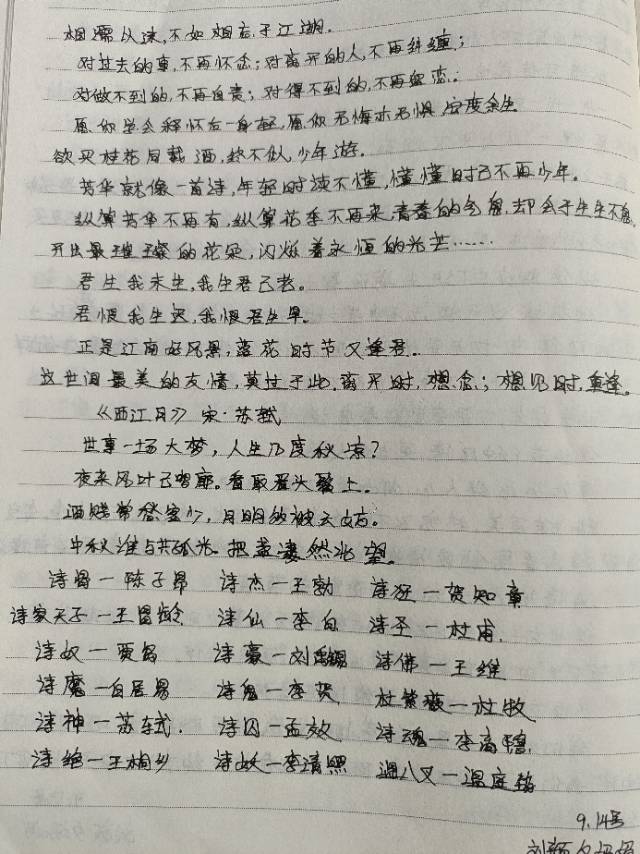 烟濡以沫,不如烟忘于江湖.
对过去的事,不再怀念;对离开的人,不再纠缠;
对做不到的,不再自责;对得不到的,不再留恋.
愿你学会释怀后一身轻,愿你无悔亦无惧 安度余生
欲买桂花同载酒,终不似少年游.
芳华就像一首诗,年轻时读不懂,懂懂时已不再少年.
纵算芳华不再有,纵算花季不再来,青春的气息,却会于生生不息,
开出最璀璨的花朵,闪烁着永恒的光芒……
君生我未生,我生君已老。
君恨我生迟,我恨君生早.
正是江南好风景,落花时节又逢君.
这世间最美的友情,莫过于此,离开时,想念;想见时,重逢.
《西江月》宋·苏轼
世事一场大梦,人生几度秋凉?
夜来风叶已鸣廊.看取眉头鬓上.
酒贱常愁客少,月明多被云妨.
中秋谁与共孤光.把盏凄然北望.
诗骨一陈子昂 诗杰一王勃 诗狂一贺知章
诗家天子一王昌龄 诗仙一李白 诗圣一杜甫.
诗奴一贾岛 诗豪一刘禹锡 诗佛一王维
诗魔一白居易 诗鬼一李贺 杜紫薇一杜牧
诗神一苏轼. 诗囚一孟效 诗魂一李商隐
诗绝一王桐乡 诗妖一李清照 温八叉一温庭筠
9.14号